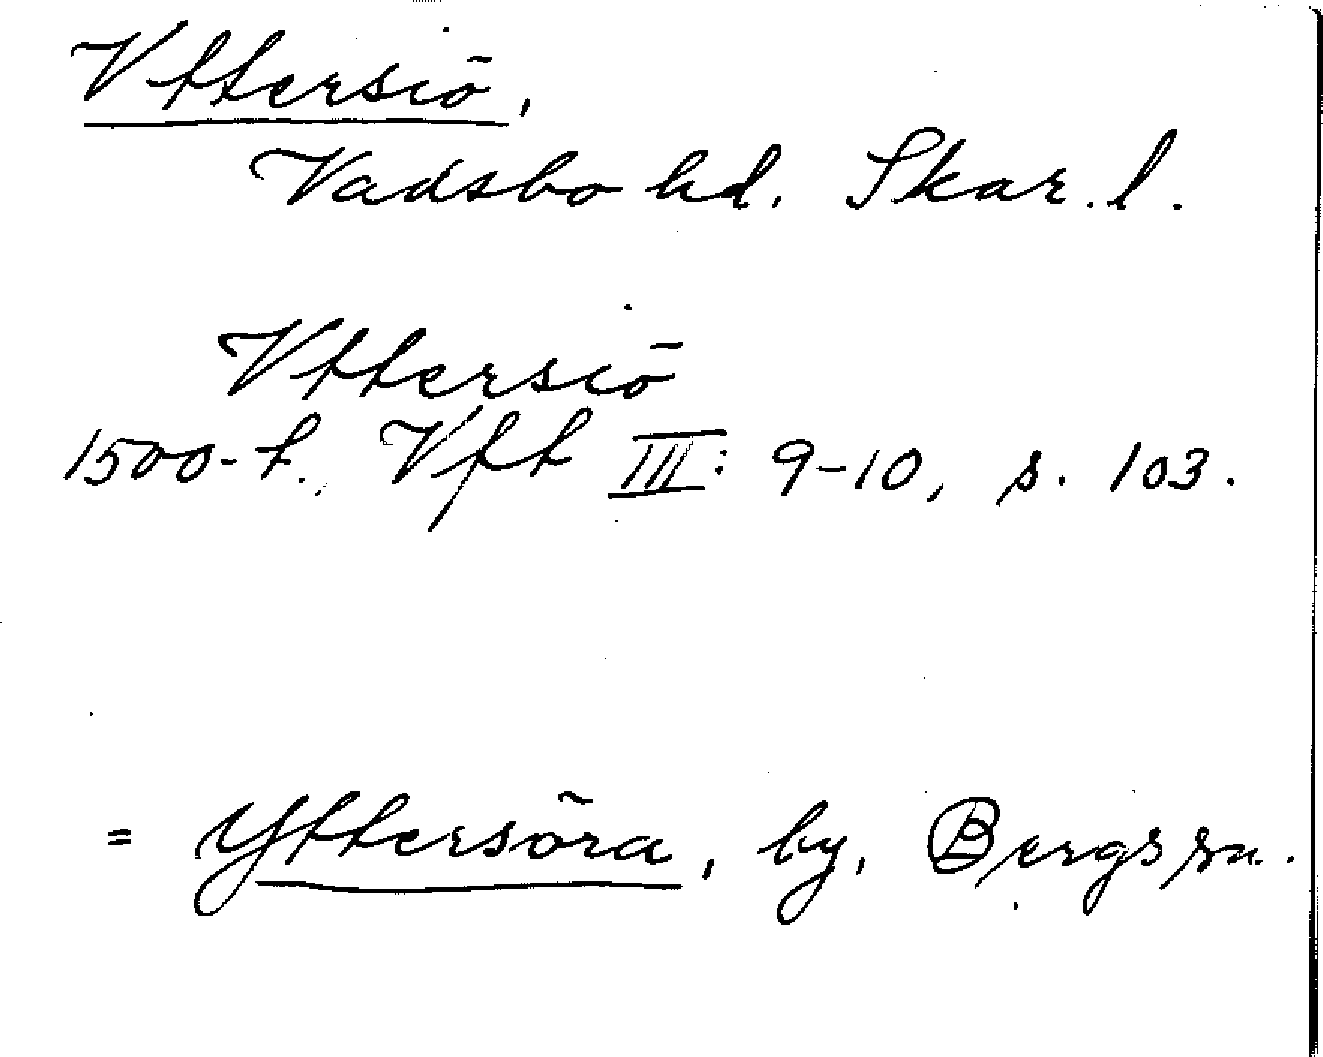 Vttersiö,
Vadsbo hd. Skar. l.
Vttersiö
1500-t. Vfft III: 9-10, s. 103.
= Yttersöra, by, Bergs sn.